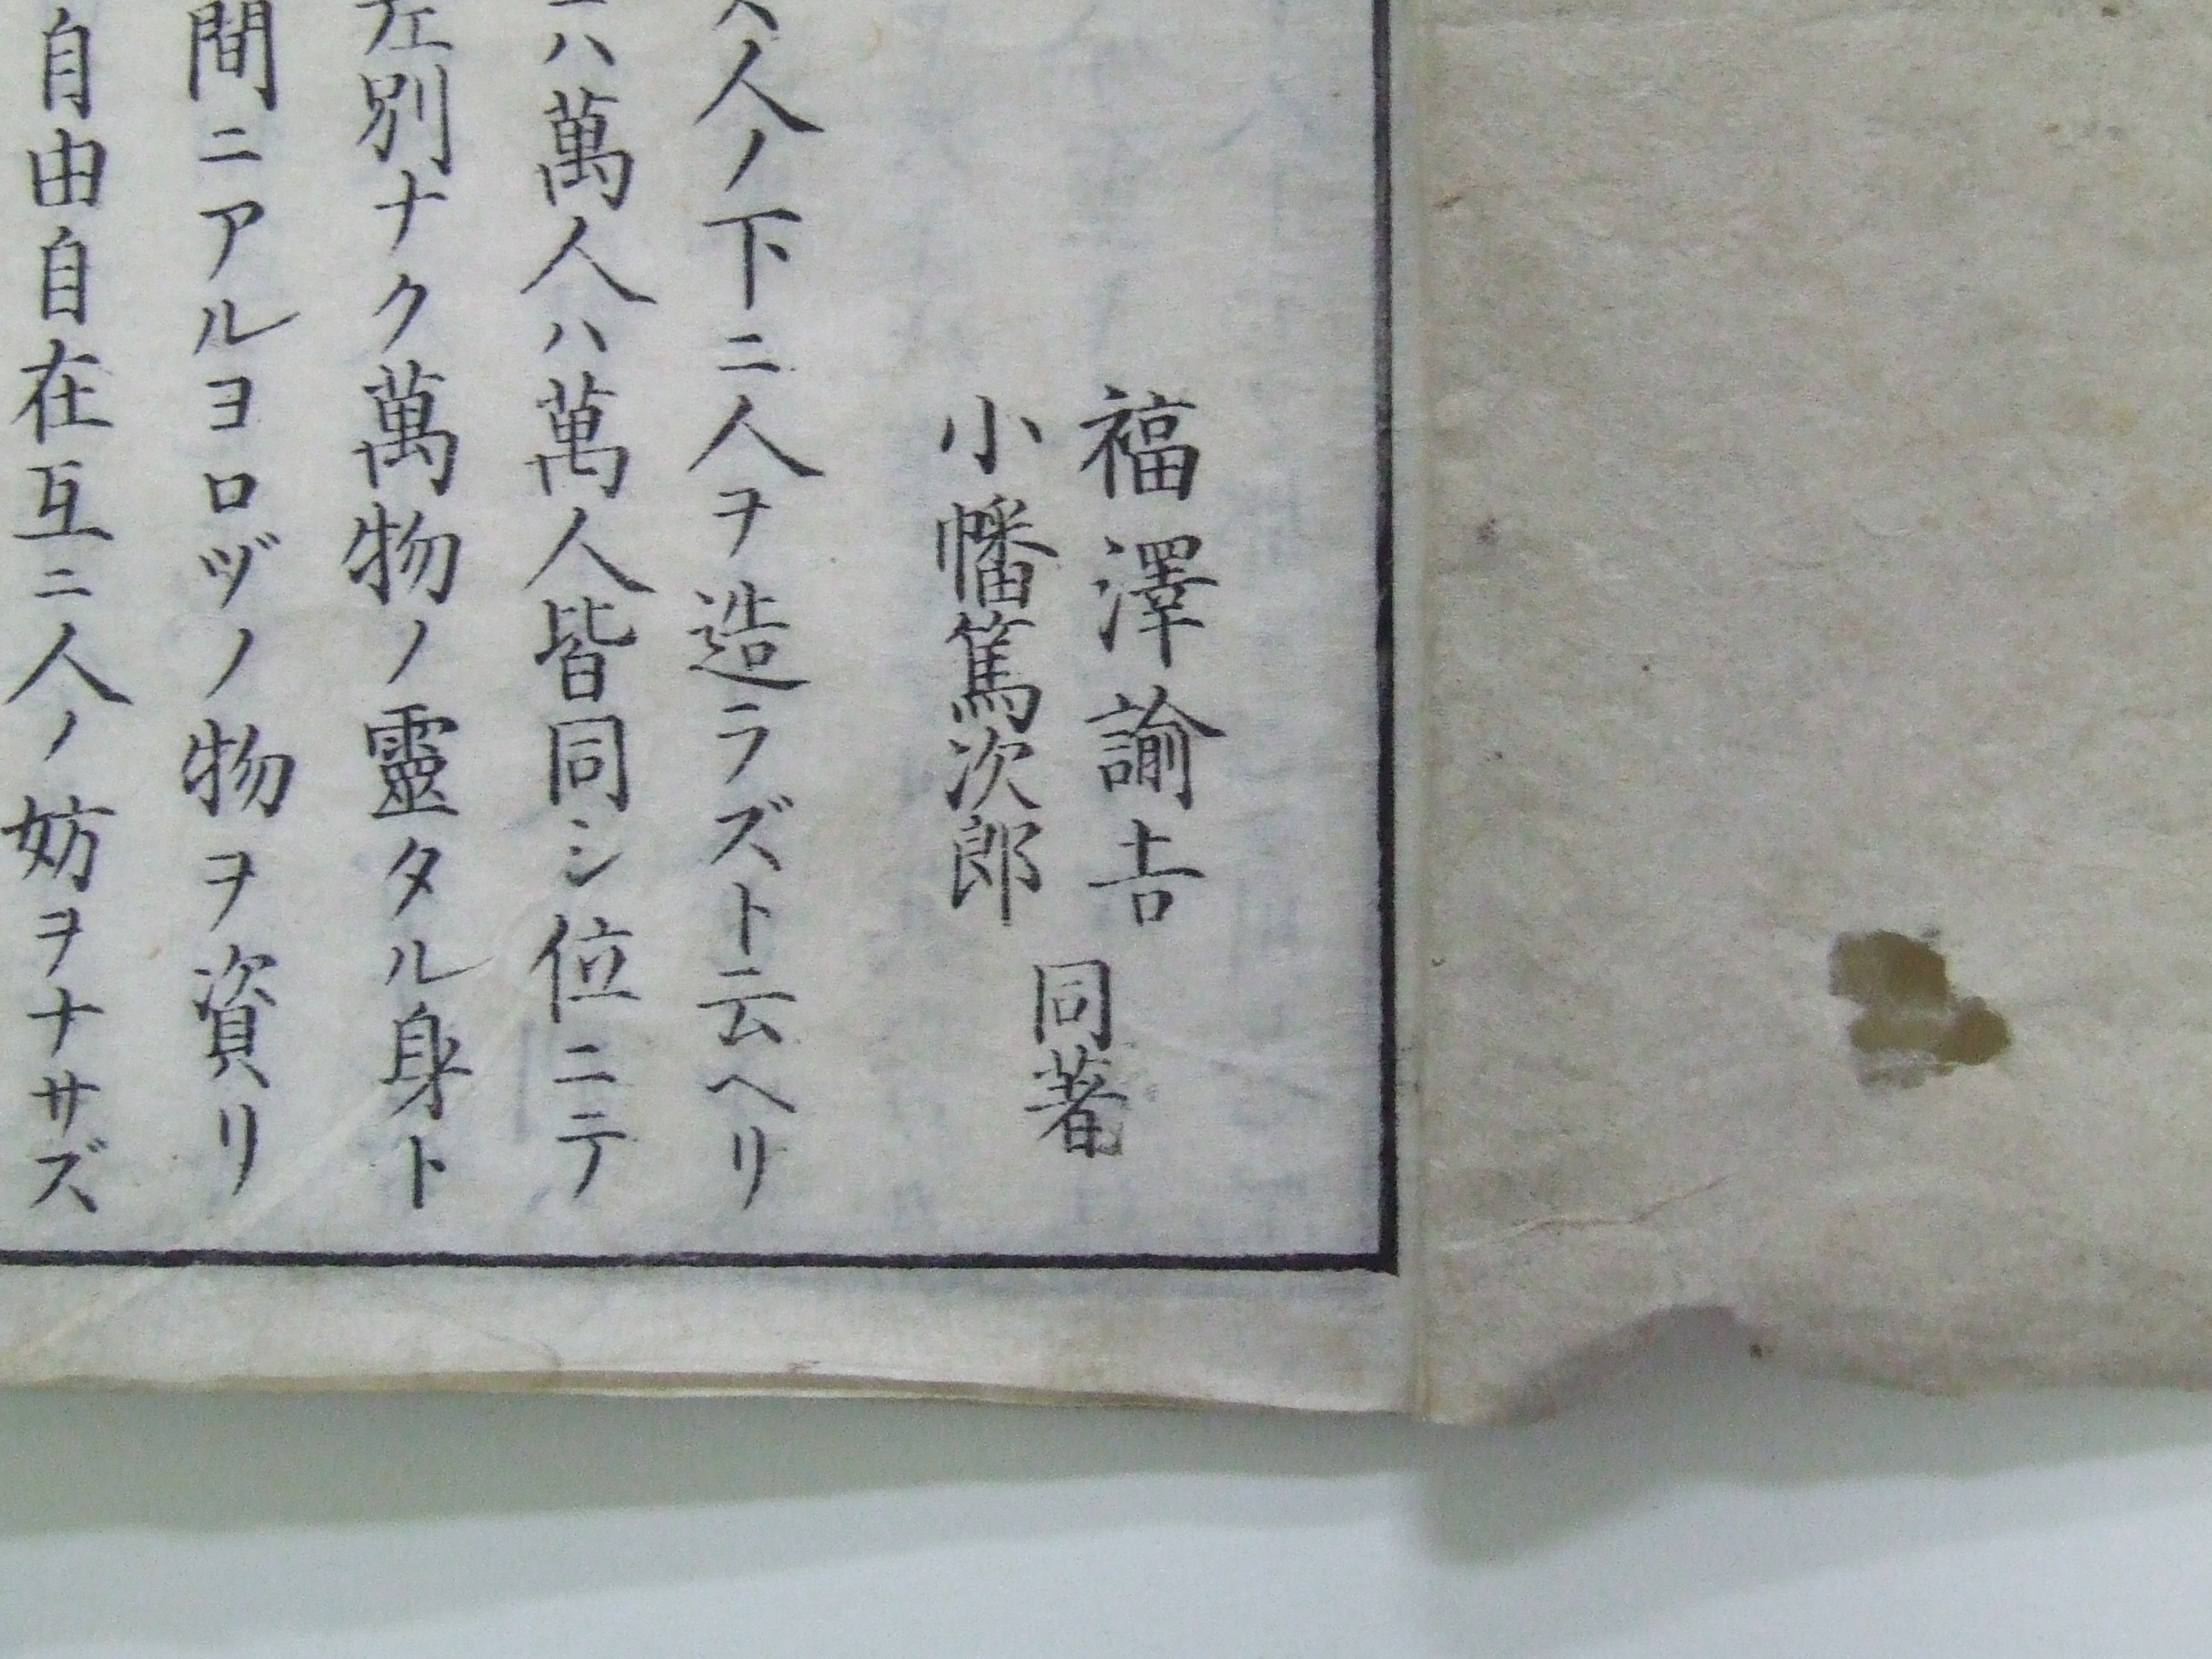 福澤諭吉
小幡篤次郎
同著
人ノ下ニ人ヲ造ラズト云ヘリ
ハ萬人ハ萬人皆同シ位ニテ
別ナク萬物ノ靈タル身ト
間ニアルヨロヅノ物ヲ資リ
自由自在互ニ人ノ妨ヲナサズ